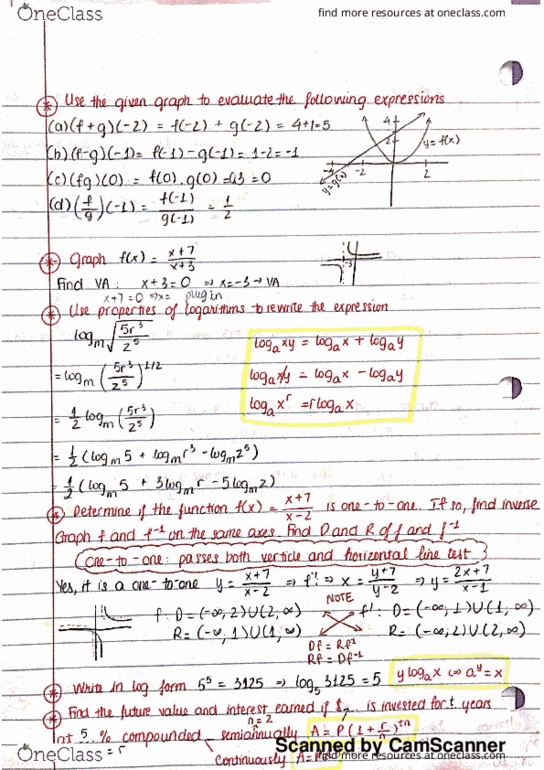 OneClass
find more resources at oneclass.com
* Use the given graph to evaluate the following expressions
(a) (f+g)(-2) = f(-2) + g(-2) = 4+1=5
(b) (f-g)(-1) = f(-1) - g(-1) = 1-2 = -1
(c) (fg)(0) = f(0) . g(0) = 0.3 = 0
(d) (f/g)(-1) = f(-1)/g(-1) = 1/2
4
2
-4 -2 2
y=f(x)
y=g(x)
* Graph f(x) = x+7/x+3
Find VA: x+3=0 ⇒ x=-3 → VA
-3
x+7=0 ⇒ x= plug in
* Use properties of logarithms to rewrite the expression
log_m √(5r³/2⁵)
= log_m (5r³/2⁵)^1/2
= 1/2 log_m (5r³/2⁵)
= 1/2 (log_m 5 + log_m r³ - log_m 2⁵)
= 1/2 (log_m 5 + 3log_m r - 5log_m 2)
log_a xy = log_a x + log_a y
log_a x/y = log_a x - log_a y
log_a x^r = r log_a x
* Determine if the function f(x) = x+7/x-2 is one-to-one. If so, find inverse
Graph f and f⁻¹ on the same axes. Find D and R of f and f⁻¹
one-to-one: passes both verticle and horizontal line test
Yes, it is a one-to-one y = x+7/x-2 ⇒ f⁻¹: ⇒ x = y+7/y-2 ⇒ y = 2x+7/x-1
NOTE
f: D = (-∞, 2) U (2, ∞)
R = (-∞, 1) U (1, ∞)
f⁻¹: D = (-∞, 1) U (1, ∞)
R = (-∞, 2) U (2, ∞)
Df = Rf⁻¹
Rf = Df⁻¹
* Write in log form 5⁵ = 3125 ⇒ log₅ 3125 = 5
y log_a x ⇔ a^y = x
* Find the future value and interest earned if $ is invested for t years
n=2
at 5.. % compounded semiannually A = P(1+r/n)^tn
= r
continuously A =
Scanned by CamScanner
OneClass
find more resources at oneclass.com